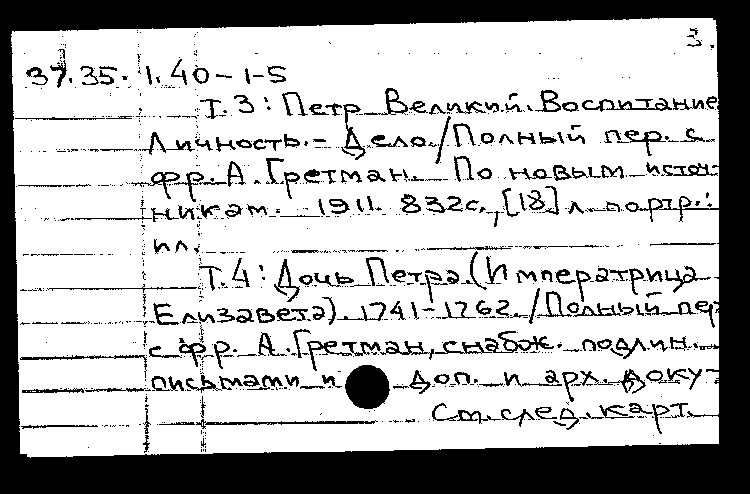 3.
37.35. 1.40-1-5
Т.3: Петр Великий. Воспитание
Личность.- Дело./Полный пер. с
фр. А. Гретман. По новым источ-
никам. 1911. 832с., [18] л. портр.:
ил.
Т.4: Дочь Петра.(Императрица
Елизавета). 1741-1762./Полный пер
с фр. А. Гретман, снабж. подлин.
письмами и доп. и арх. доку-
См. след. карт.